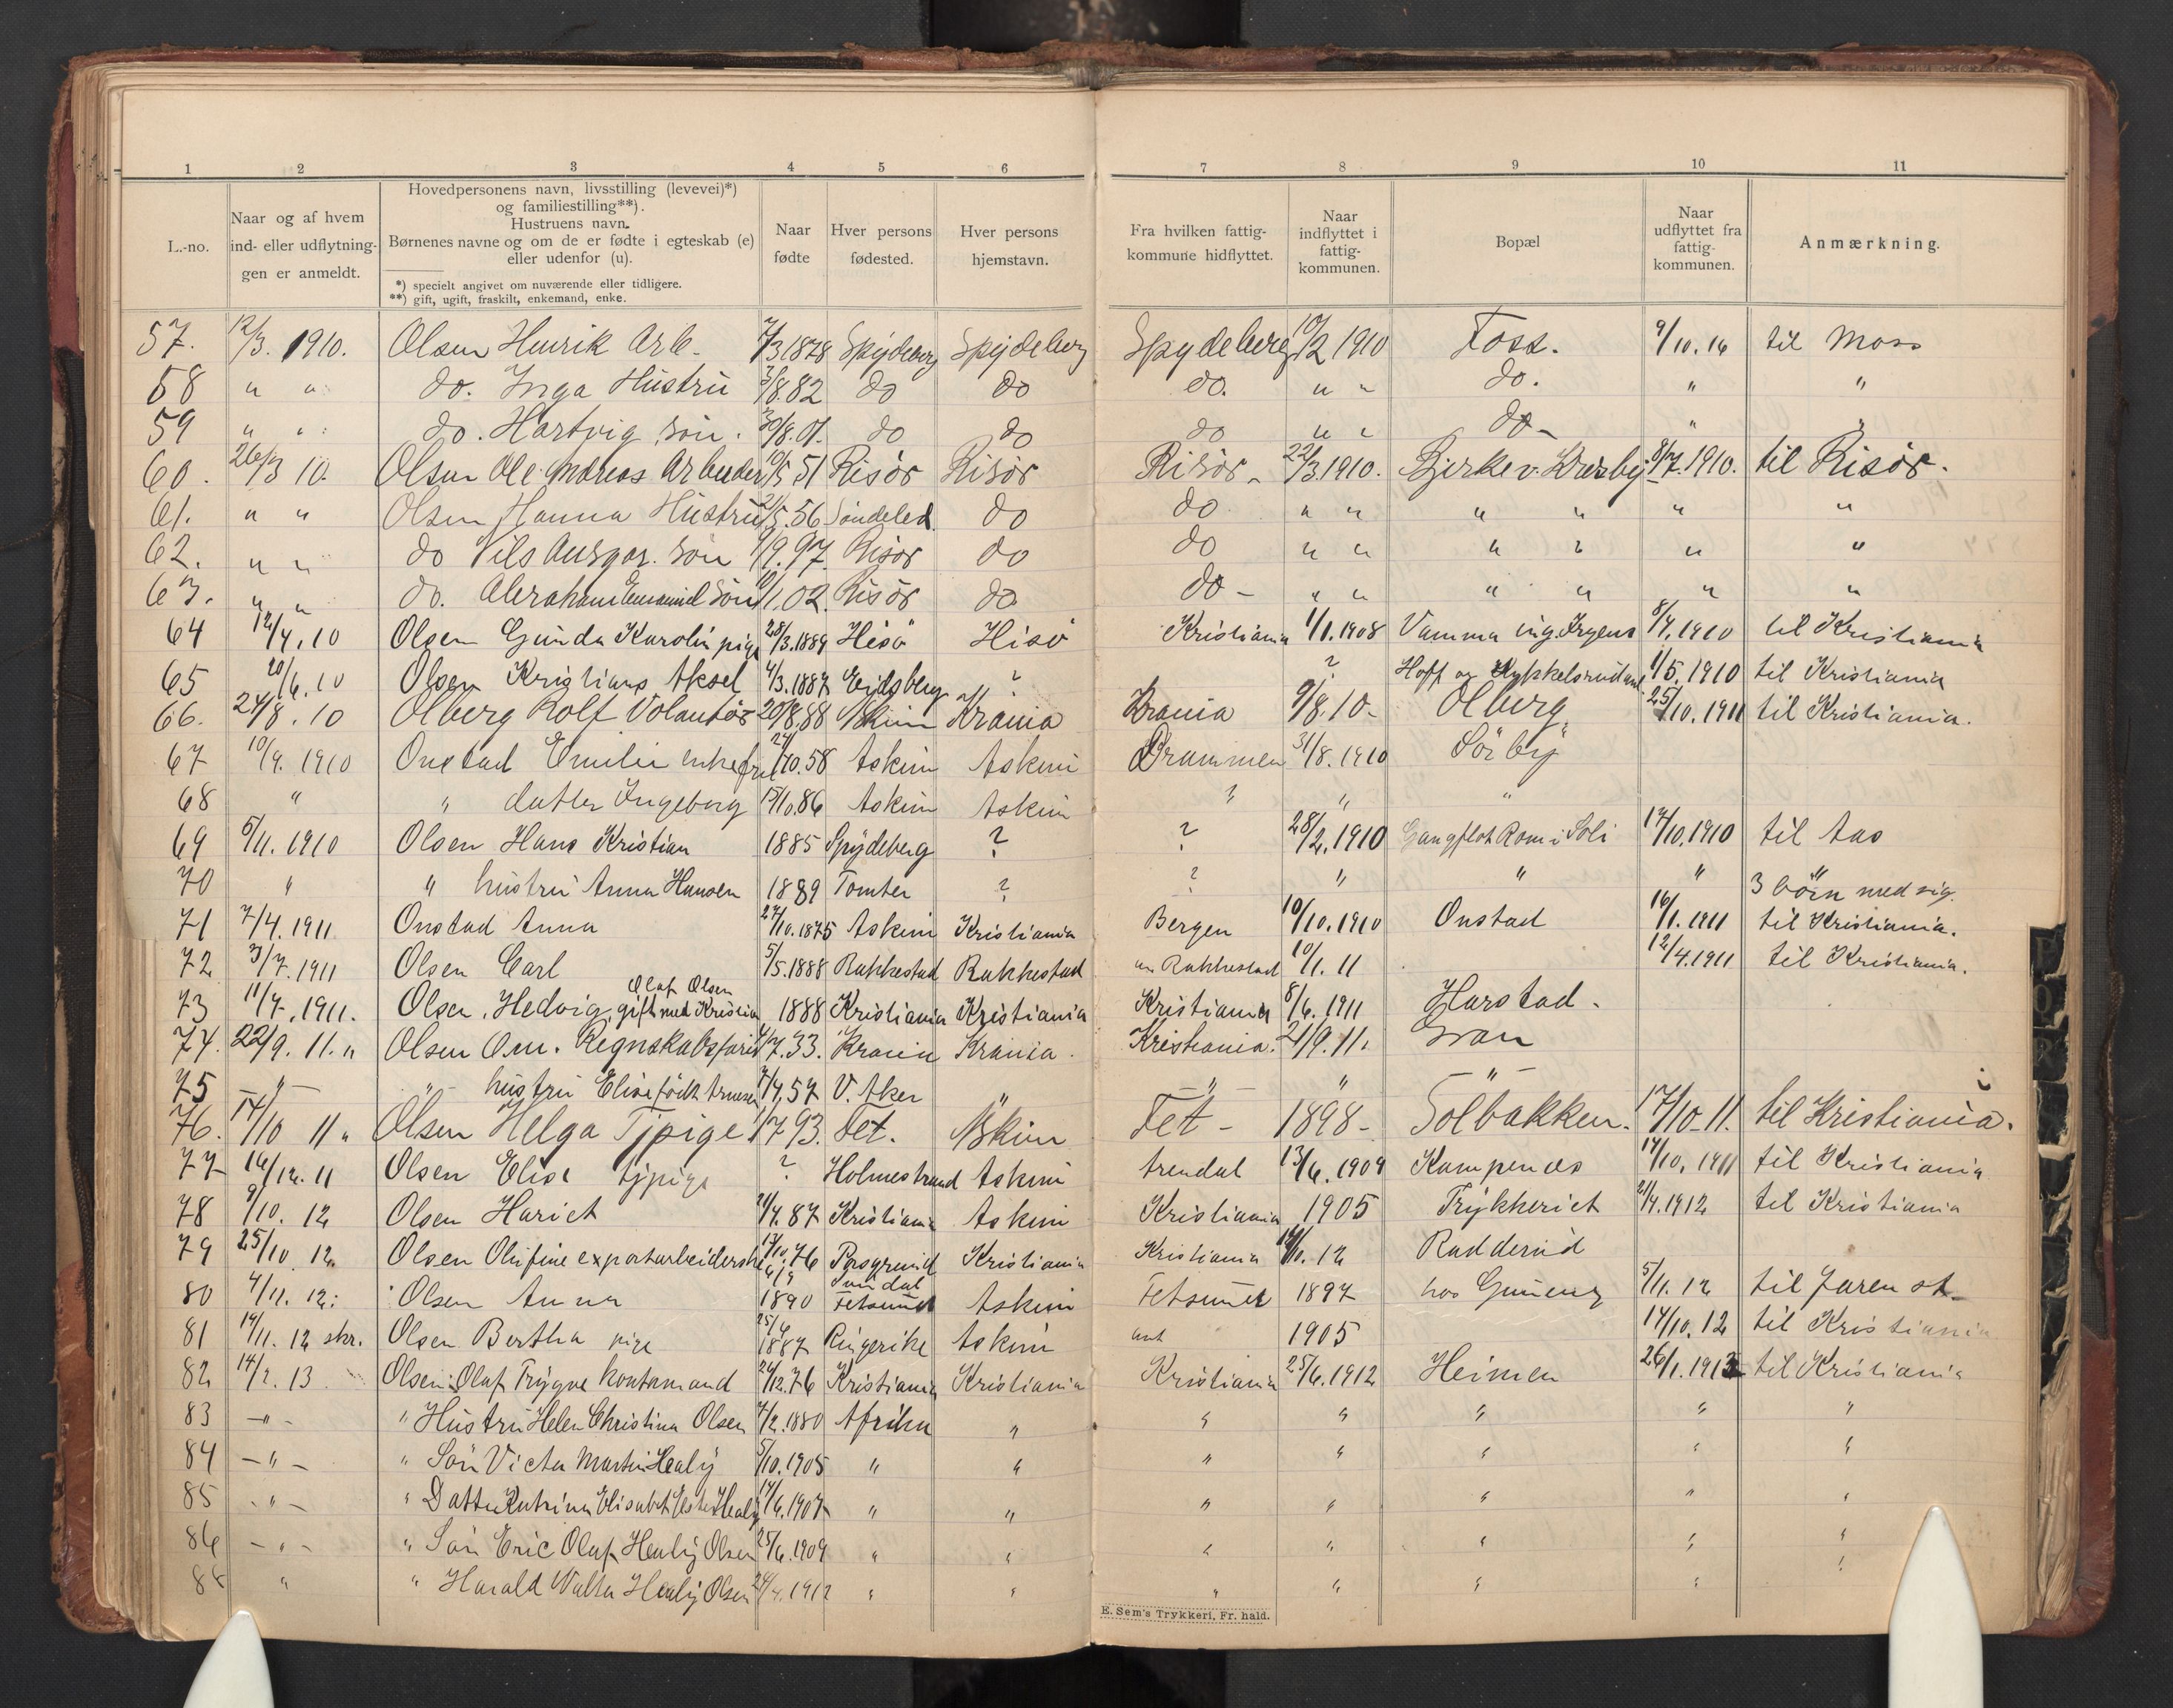 1 2 3 4 5 6 7 8 9 10 11
L.-no.
Naar og af hvem ind- eller udflytningen er anmeldt.
Hovedpersonens navn, livsstilling (levevei)*)
og familiestilling**).
Hustruens navn.
Børnenes navne og om de er fødte i egteskab (e)
eller udenfor (u).
*) specielt angivet om nuværende eller tidligere.
**) gift, ugift, fraskilt, enkemand, enke.
Naar fødte
Hver persons fødested.
Hver persons hjemstavn.
Fra hvilken fattigkommune hidflyttet.
Naar indflyttet i fattigkommunen.
Bopæl
Naar udflyttet fra fattigkommunen.
Anmærkning.
57. 12/3. 1910. Olsen Henrik Arb. 7/3 1878 Spydeberg Spydeberg Spydeberg 10/2 1910 Foss. 9/10. 16 til Moss
58 " " do. Inga Hustru 3/8.82 do do do. " " do. " "
59 " " do. Hartvig søn. 30/8.01. do do do " " do - " "
60. 26/3 10. Olsen Ole Andreas Arbeider 10/5 51 Risör Risör Risör - 22/3.1910. Bjerke v. 8/7.1910. til Risör.
61. " " Olsen Hanna Hustru 21/5.56 Söndeled do do " " " " " "
62. " " do Nils Ansgar. søn 9/9.97. Risör do do " " " " " "
63. " " do. Abraham Emanuel Søn 1.02. Risör do do - " " " " " "
64 12/4.10 Olsen Gunda Karolin pige 28/3.1889 Hisö Hisö Kristiania 1/1.1908 Vamma ing. Irgens 8/4.1910 til Kristiania
65 20/6.10 Olsen Kristians Aksel 4/3.1887 Eidsberg ? ? Hoff og 1/5.1910 til Kristiania
66. 24/8.10 Olberg Rolf Volontör 20/8.88 Askim Krania Krania 9/8.10- Olberg 25/10.1911 til Kristiania.
67 10/9.1910 Onstad Emilie enkefru 24/10.58 Askim Askim Drammen 31/8.1910 Sörby
68 " " datter Ingeborg 15/10.86 Askim Askim " " "
69 5/11.1910 Olsen Hans Kristian 1885 Spydeberg ? ? 28/2.1910 Rom i Soli 14/10.1910 til Aas
70 " " hustru Anna Hansen 1889 Tomter ? ? " " " " 3 börn med sig.
71 7/4.1911 Onstad Anna 27/10.1875 Askim Kristiania Bergen 10/10.1910 Onstad 16/1.1911 til Kristiania.
72 3/7.1911 Olsen Carl 5/5.1888 Rakkestad Rakkestad Rakkestad 10/1.11 12/4.1911 til Kristiania.
73 11/7.1911. Olsen, Hedvig, gift med Kristian Olaf Olsen 1888 Kristiania Kristiania Kristiania 8/6.1911 Harstad.
74. 22/9.11." Olsen O.M. 4/7.33. Krania Krania. Kristiania. 21/9.11. Gran
75 -"- " hustru Elise födt 7/4.57 V. Aker " -"- " -"-
76. 14/10 11" Olsen Helga Tjpige 1/7 93. Fet. Askim Fet - 1898- Solbakken. 17/10-11. til Kristiania.
77 16/12.11 Olsen Elise tjpige ? Holmestrand Askim Arendal 13/6.1909 Kampenes 14/10.1911 til Kristiania
78 9/10.12 Olsen Hariet 21/4.87 Kristiania Askim Kristiania 1905 Trykkeriet 21/4.1912 til Kristiania
79 25/10 12. Olsen Olufine exportarbeiderske 17/10.76 Porsgrund Kristiania Kristiania 14/10.12 Radderud
80 4/11.12. Olsen Anna 6/9 1890 Fetsund Askim Fetsund 1897 hos 5/11.12 til Jaren st.
81 14/11.12 skr. Olsen Bertha pige 25/6 1887 Ringerike Askim 1905 14/10.12 til Kristiania
82 14/2.13 Olsen Olaf Trygve kontormand 24/12.76 Kristiania Kristiania Kristiania 25/6.1912 Heimen 26/1.1913 til Kristiania
83 -"- " Hustru Helen Christina Olsen 7/2.1880 Afrika " " " " " "
84 -"- " Sön Victor Martin Healy 5/10.1905 " " " " " " "
85 -"- " Datter Katrina Elisabet Healy 14/6.1907 " " " " " " "
86 -"- " Sön Eric Olaf Healy Olsen 25/6.1909 " " " " " " "
88 " " Harald Walter Healy Olsen 24/4.1912 " " " " " " "
E. Sem's Trykkeri, Fr. hald.